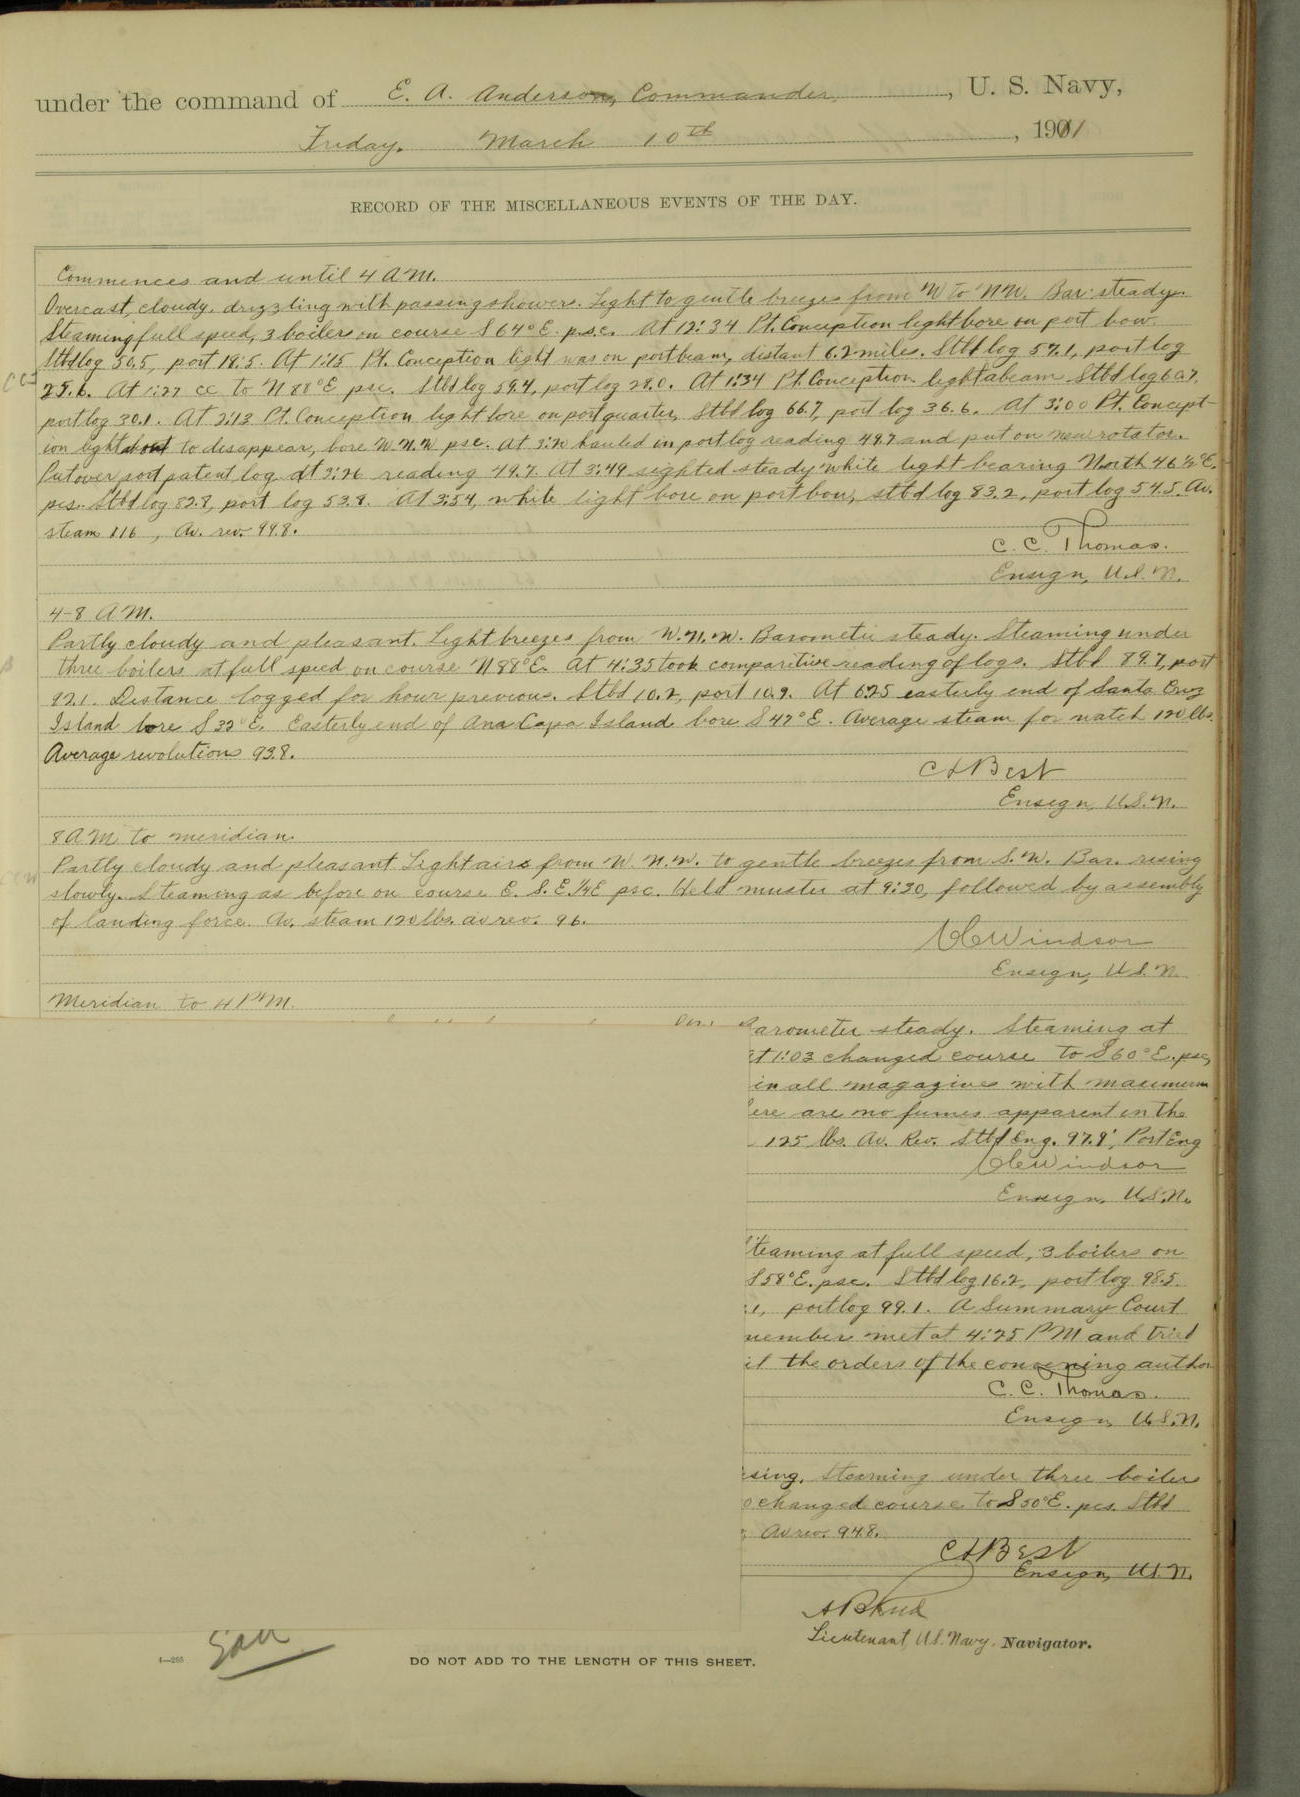 under the command of E. A. Anderson, Commander, U. S. Navy,
Friday, March 10th, 1911
RECORD OF THE MISCELLANEOUS EVENTS OF THE DAY.
Commences and until 4 A M.
Overcast, cloudy, drizzling with passing showers. Light to gentle breezes from W to NW. Bar. steady.
Steaming full speed, 3 boilers on course S 64°E. p.s.c. At 12:34 Pt. Conception light bore on port bow.
Stbd log 50.5, port 18.5. At 1:15 Pt. Conception light was on port beam, distant 6.2 miles. Stbd log 57.1, port log
25.6. At 1:27 cc to N 88°E psc. Stbd log 59.4, port log 28.0. At 1:34 Pt. Conception light abeam Stbd log 60.7,
port log 30.1. At 2:13 Pt. Conception light bore on port quarter, Stbd log 66.7, port log 36.6. At 3:00 Pt. Concept-
ion light to disappear, bore W.N.W psc. At 3:20 hauled in port log reading 49.7 and put on new rotator.
Put over port patent log at 3:26 reading 49.7. At 3:49 sighted steady white light bearing North 46½°E.
psc. Stbd log 82.8, port log 53.8. At 3:54, white light bore on port bow, stbd log 83.2, port log 54.5. Av.
steam 116, Av. rev. 99.8.
C. C. Thomas.
Ensign, U.S.N.
4-8 A M.
Partly cloudy and pleasant. Light breezes from W.N.W. Barometer steady. Steaming under
three boilers at full speed on course N 88°E. At 4:35 took comparitive reading of logs. Stbd 89.7, port
92.1. Distance logged for hour previous. Stbd 10.2, port 10.9. At 6:25 easterly end of Santa Cruz
Island bore S 32°E. Easterly end of Ana Capa Island bore S 47°E. Average steam for watch 120 lbs.
Average revolutions 93.8.
C Best
Ensign, U.S.N.
8 A M to meridian.
Partly cloudy and pleasant Light airs from W. N. W. to gentle breezes from S. W. Bar. rising
slowly. Steaming as before on course E. S. E. ¼ E psc. Held muster at 9:30, followed by assembly
of landing force. Av. steam 120 lbs. av rev. 96.
Windsor
Ensign, U.S.N.
Meridian to 4 P M.
Barometer steady. Steaming at
At 1:03 changed course to S 60°E. psc,
in all magazines with maximum
ere are no fumes apparent in the
125 lbs. Av. Rev. Stbd Eng. 97.9', Port Eng
Windsor
Ensign, U.S.N.
teaming at full speed, 3 boilers on
S 58°E. psc. Stbd log 16.2, port log 98.5.
.1, port log 99.1. A Summary Court
member met at 4:25 P M and tried
it the orders of the convening author
C. C. Thomas.
Ensign, U.S.N.
sing. Steaming under three boilers
o changed course to S 50°E. pcs. Stbd
Av rev. 94.8.
C Best
Ensign, U.S.N.
Lieutenant, U.S. Navy, Navigator.
4—265
DO NOT ADD TO THE LENGTH OF THIS SHEET.